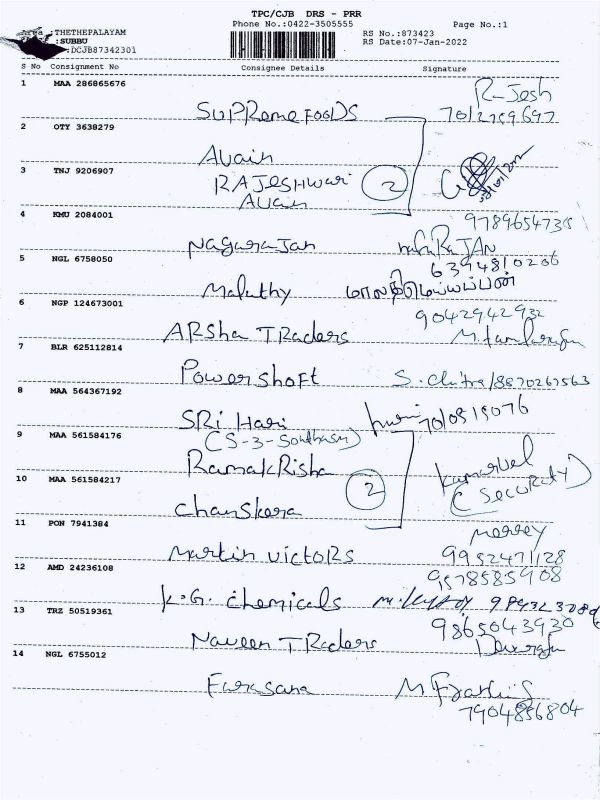 TPC/CJB DRS - PRR
Phone No.:0422-3505555 Page No.:1
:THETHEPALAYAM RS No.:873423
:SUBBU RS Date:07-Jan-2022
:DCJB87342301
S No Consignment No Consignee Details Signature
1 MAA 286865676
SUPReme FOODS
2 OTY 3638279
Avain
3 TNJ 9206907
RAJeSHwari 2
Avain
4 KMU 2084001
9789654735
Nagarajan
5 NGL 6758050
Malathy
6 NGP 124673001
9042942932
ARsha TRaders
7 BLR 625112814
Powershoft S. chitra/8870267563
8 MAA 564367192
SRi Hari
9 MAA 561584176
Ramakrisha
10 MAA 561584217
2 (Security)
chanskera
11 PON 7941384
Martin victors 9952471128
12 AMD 24236108
9578585908
K.G. chemicals
13 TRZ 50519361
9865043930
Naveen TRaders
14 NGL 6755012
Farasana
7904856804